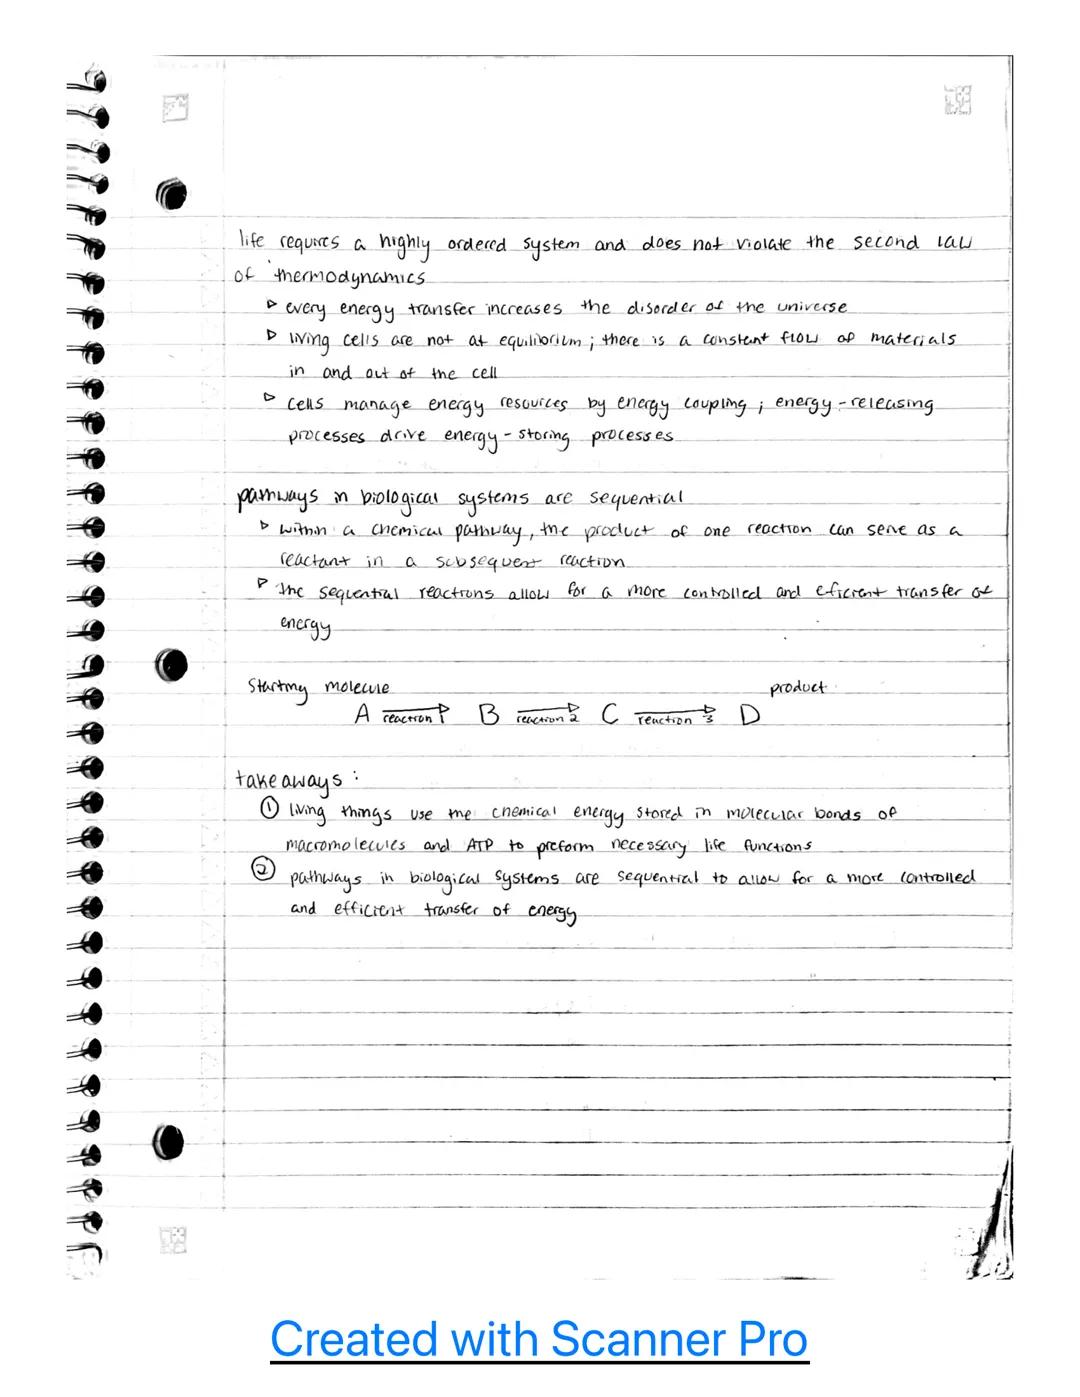 life requires a highly ordered system and does not violate the second law
of thermodynamics
▷ every energy transfer increases the disorder of the universe
▷ living cells are not at equilibrium; there is a constant flow of materials
in and out of the cell
▷ cells manage energy resources by energy coupling; energy-releasing
processes drive energy-storing processes
pathways in biological systems are sequential
▷ within a chemical pathway, the product of one reaction can serve as a
reactant in a subsequent reaction
▷ the sequential reactions allow for a more controlled and eficient transfer of
energy
starting molecule product
A reaction 1 B reaction 2 C reaction 3 D
takeaways:
① living things use the chemical energy stored in molecular bonds of
macromolecules and ATP to preform necessary life functions
② pathways in biological systems are sequential to allow for a more controlled
and efficient transfer of energy
Created with Scanner Pro